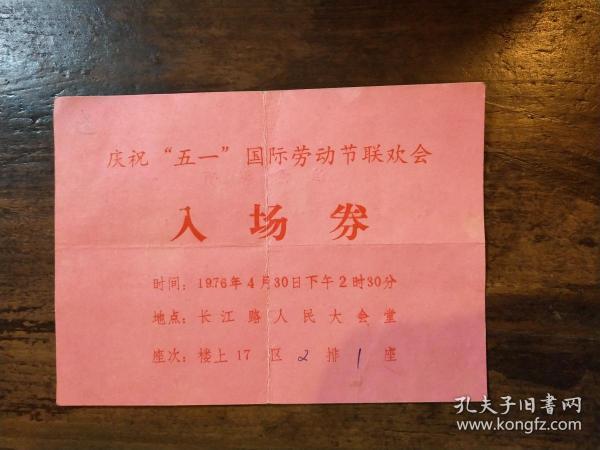 庆祝“五一”国际劳动节联欢会
入场券
时间：1976年4月30日下午2时30分
地点：长江路人民大会堂
座次：楼上17区2排1座
孔夫子旧书网
www.kongfz.com